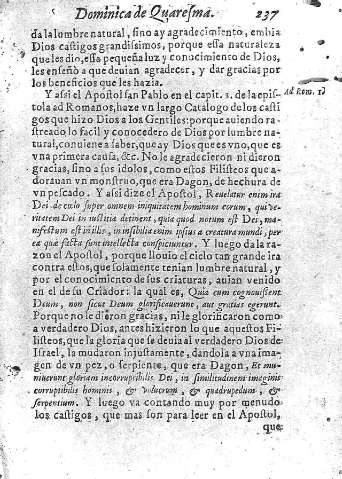 Dominica de Quaresma. 237
da la lumbre natural, sino ay agradecimiento, embia
Dios castigos grandissimos, porque essa naturaleza
que les dio, essa pequeña luz y conocimiento de Dios,
les enseñó a que deuian agradecer, y dar gracias por
los beneficios que les hazia.
Y assi el Apostol san Pablo en el capit. 1. de la epis-
tola ad Romanos, haze vn largo Catalogo de los casti
gos que hizo Dios a los Gentiles: porque auiendo ra-
streado lo facil y conocedero de Dios por lumbre na-
tural, conuiene a saber, que ay Dios que es vno, que es
vna primera causa, &c. No le agradecieron ni dieron
gracias, sino a sus idolos, como estos Filisteos que a-
dorauan vn monstruo, que era Dagon, de hechura de
vn pescado. Y assi dize el Apostol, Reuelatur enim ira
Dei de cælo super omnem iniquitatem hominum eorum, qui ve-
ritatem Dei in iustitia detinent, quia quod notum est Dei, ma-
nifestum est in illis, inuisibilia enim ipsius a creatura mundi, per
ea quæ facta sunt intellecta conspiciuntur. Y luego da la ra-
zon el Apostol, porque llouio el cielo tan grande ira
contra estos, que solamente tenian lumbre natural, y
por el conocimiento de sus criaturas, auian venido
en el de su Criador: la qual es, Quia cum cognouissent
Deum, non sicut Deum glorificauerunt, aut gratias egerunt.
Porque no le dieron gracias, ni le glorificaron como
a verdadero Dios, antes hizieron lo que aquestos Fi-
listeos, que la gloria que se deuia al verdadero Dios de
Israel, la mudaron injustamente, dandola a vna ima-
gen de vn pez, o serpiente, que era Dagon, Et mu-
tauerunt gloriam incorruptibilis Dei, in similitudinem imaginis
corruptibilis hominis, & volucrum, & quadrupedum, &
serpentium. Y luego va contando muy por menudo
los castigos, que mas son para leer en el Apostol,
que
Ad Rom. 1